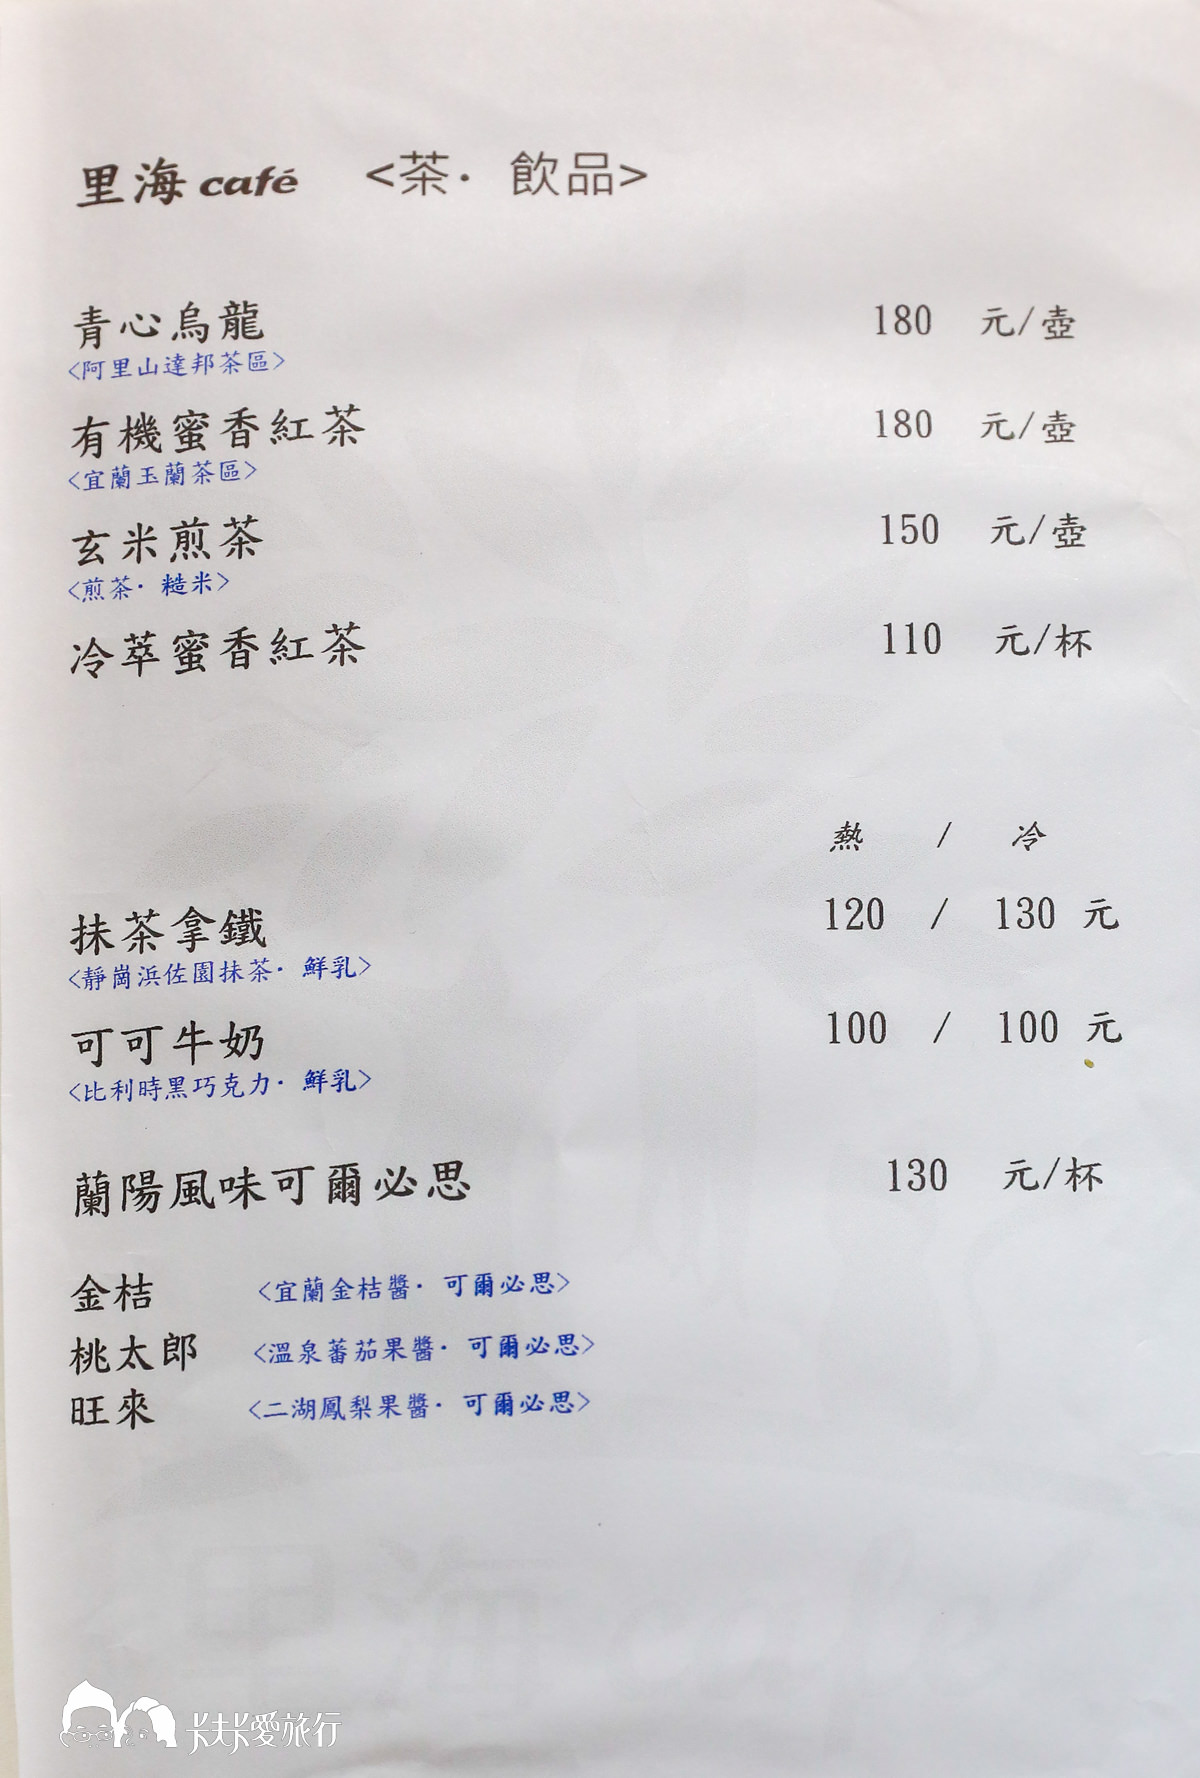 里海 café <茶· 飲品>
青心烏龍 180 元/壺
<阿里山達邦茶區>
有機蜜香紅茶 180 元/壺
<宜蘭玉蘭茶區>
玄米煎茶 150 元/壺
<煎茶· 糙米>
冷萃蜜香紅茶 110 元/杯
熱 / 冷
抹茶拿鐵 120 / 130 元
<靜崗浜佐園抹茶· 鮮乳>
可可牛奶 100 / 100 元
<比利時黑巧克力· 鮮乳>
蘭陽風味可爾必思 130 元/杯
金桔 <宜蘭金桔醬· 可爾必思>
桃太郎 <溫泉蕃茄果醬· 可爾必思>
旺來 <二湖鳳梨果醬· 可爾必思>
卡夫卡愛旅行